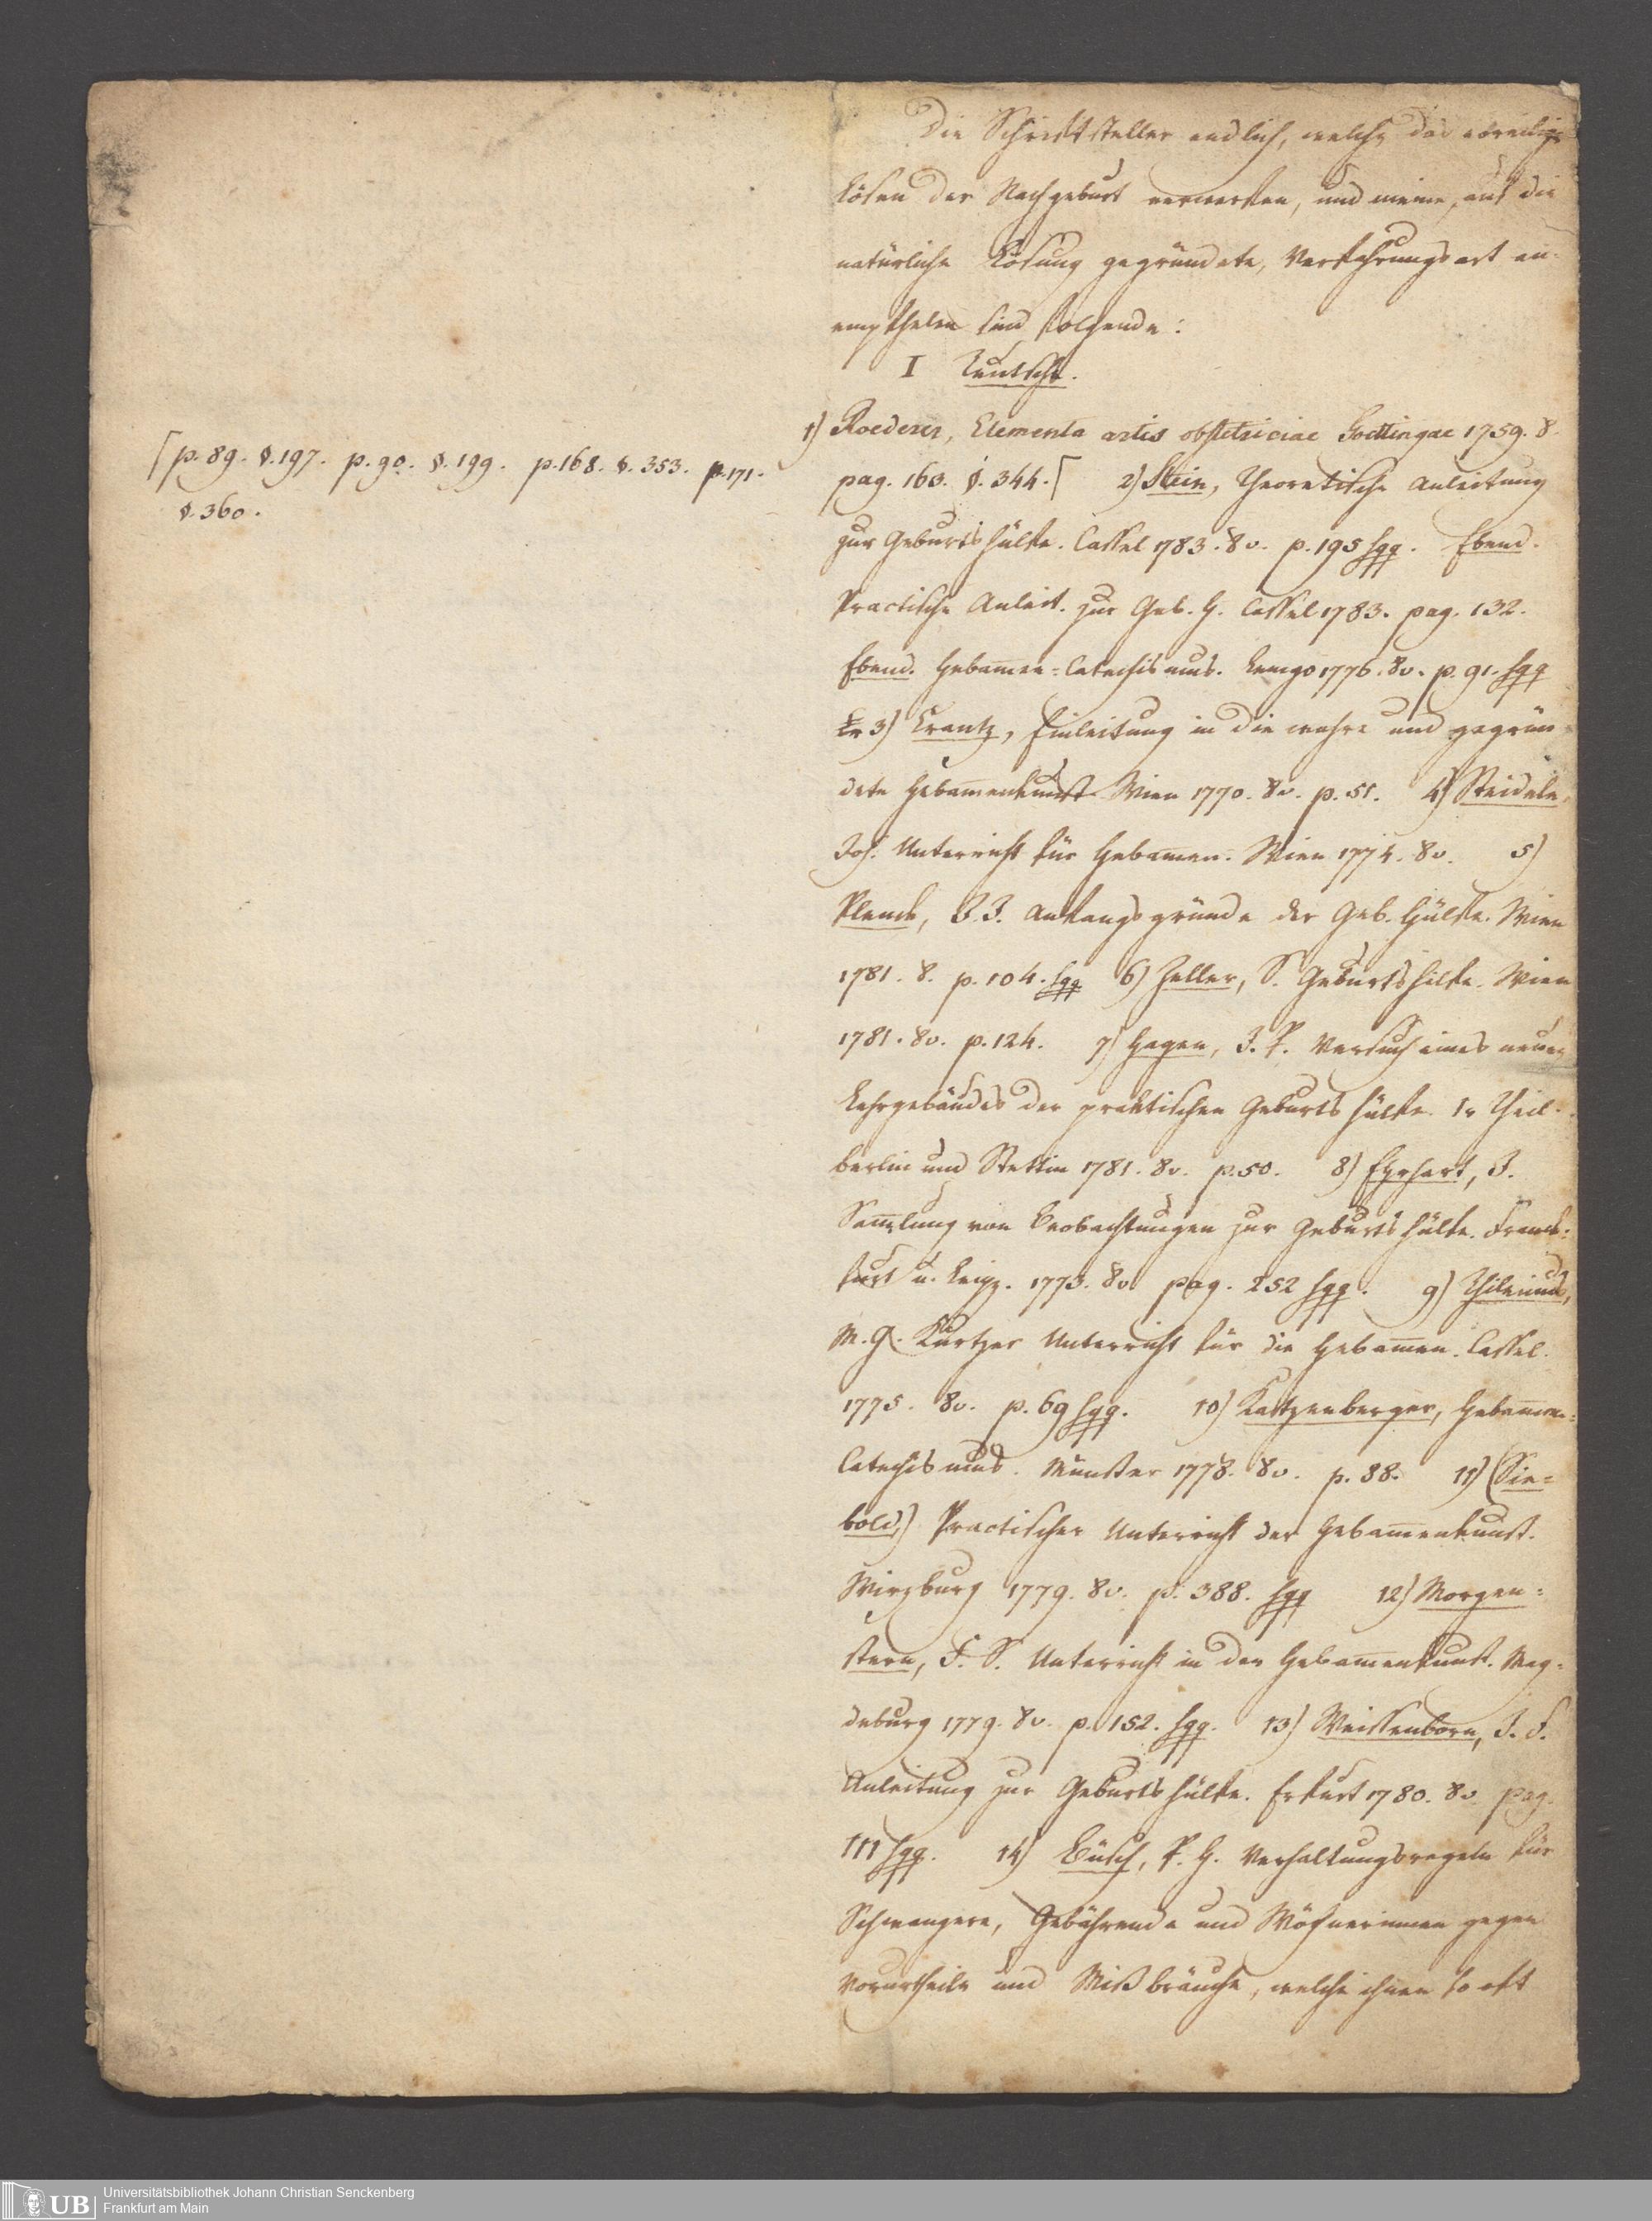 Die Schriftsteller endlich, welche das voreilige
Lösen der Nachgeburt verwerfen, und meine, auf die
natürliche Lösung gegründete, Verfahrungsart an-
empfhelen sind folgende:
I Teutsche.
1) Roederer, Elementa artis obstetriciae Goettingae 1759. 8.
pag. 163. §. 344. ⌈ 2) Stein, Theoretische Anleitung
⌈ p. 89. §. 197. p. 90. §. 199. p. 168. §. 353. p. 171.
§. 360.
zur Geburtshülfe. Cassel 1783. 8v. p. 195 sqq. Ebend.
Practische Anleit. zur Geb. H. Cassel 1783. pag. 132.
Ebend. Hebam̅en-Catechismus. Lemgo 1776. 8v. p. 91. sqq
3) Crantz, Einleitung in die wahre und gegrün-
dete Hebam̅enkunst Wien 1770. 8v. p. 51. 4) Steidele,
Joh. Unterricht für Hebam̅en. Wien 1774. 8v. 5)
Plenck, J. J. Anfangsgründe der Geb. Hülfe. Wien
1781. 8. p. 104. sqq 6) Zeller, S. Geburtshilfe. Wien
1781. 8v. p. 124. 7) Hagen, J. P. Versuch eines neuen
Lehrgebäudes der praktischen Geburtshülfe. 1r Theil.
Berlin und Stettin 1781. 8v. p. 50. 8) Ehrhart, J.
Sam̅lung von Beobachtungen zur Geburtshülfe. Franck-
furt u. Leipz. 1773. 8v. pag. 252 sqq. 9) Thilenius,
M. G. Kurtzer Unterricht für die Hebam̅en. Cassel.
1775. 8v. p. 69 sqq. 10) Katzenberger, Hebam̅en-
Catechismus. Münster 1778. 8v. p. 88. 11) (Sie-
bold,) Practischer Unterricht der Hebam̅enkunst.
Wirzburg 1779. 8v. p. 388. sqq 12) Morgen-
stern, F. S. Unterricht in der Hebam̅enkunst. Mag-
deburg 1779. 8v. p. 152. sqq. 13) Weissenborn, J. F.
Anleitung zur Geburtshülfe. Erfurt 1780. 8v. pag.
111 sqq. 14) Büsch, P. H. Verhaltungsregeln für
Schwangere, Gebährende und Wöchnerinnen gegen
Vorurtheile und Mißbräuche, welche ihnen so oft
UB
Universitätsbibliothek Johann Christian Senckenberg
Frankfurt am Main